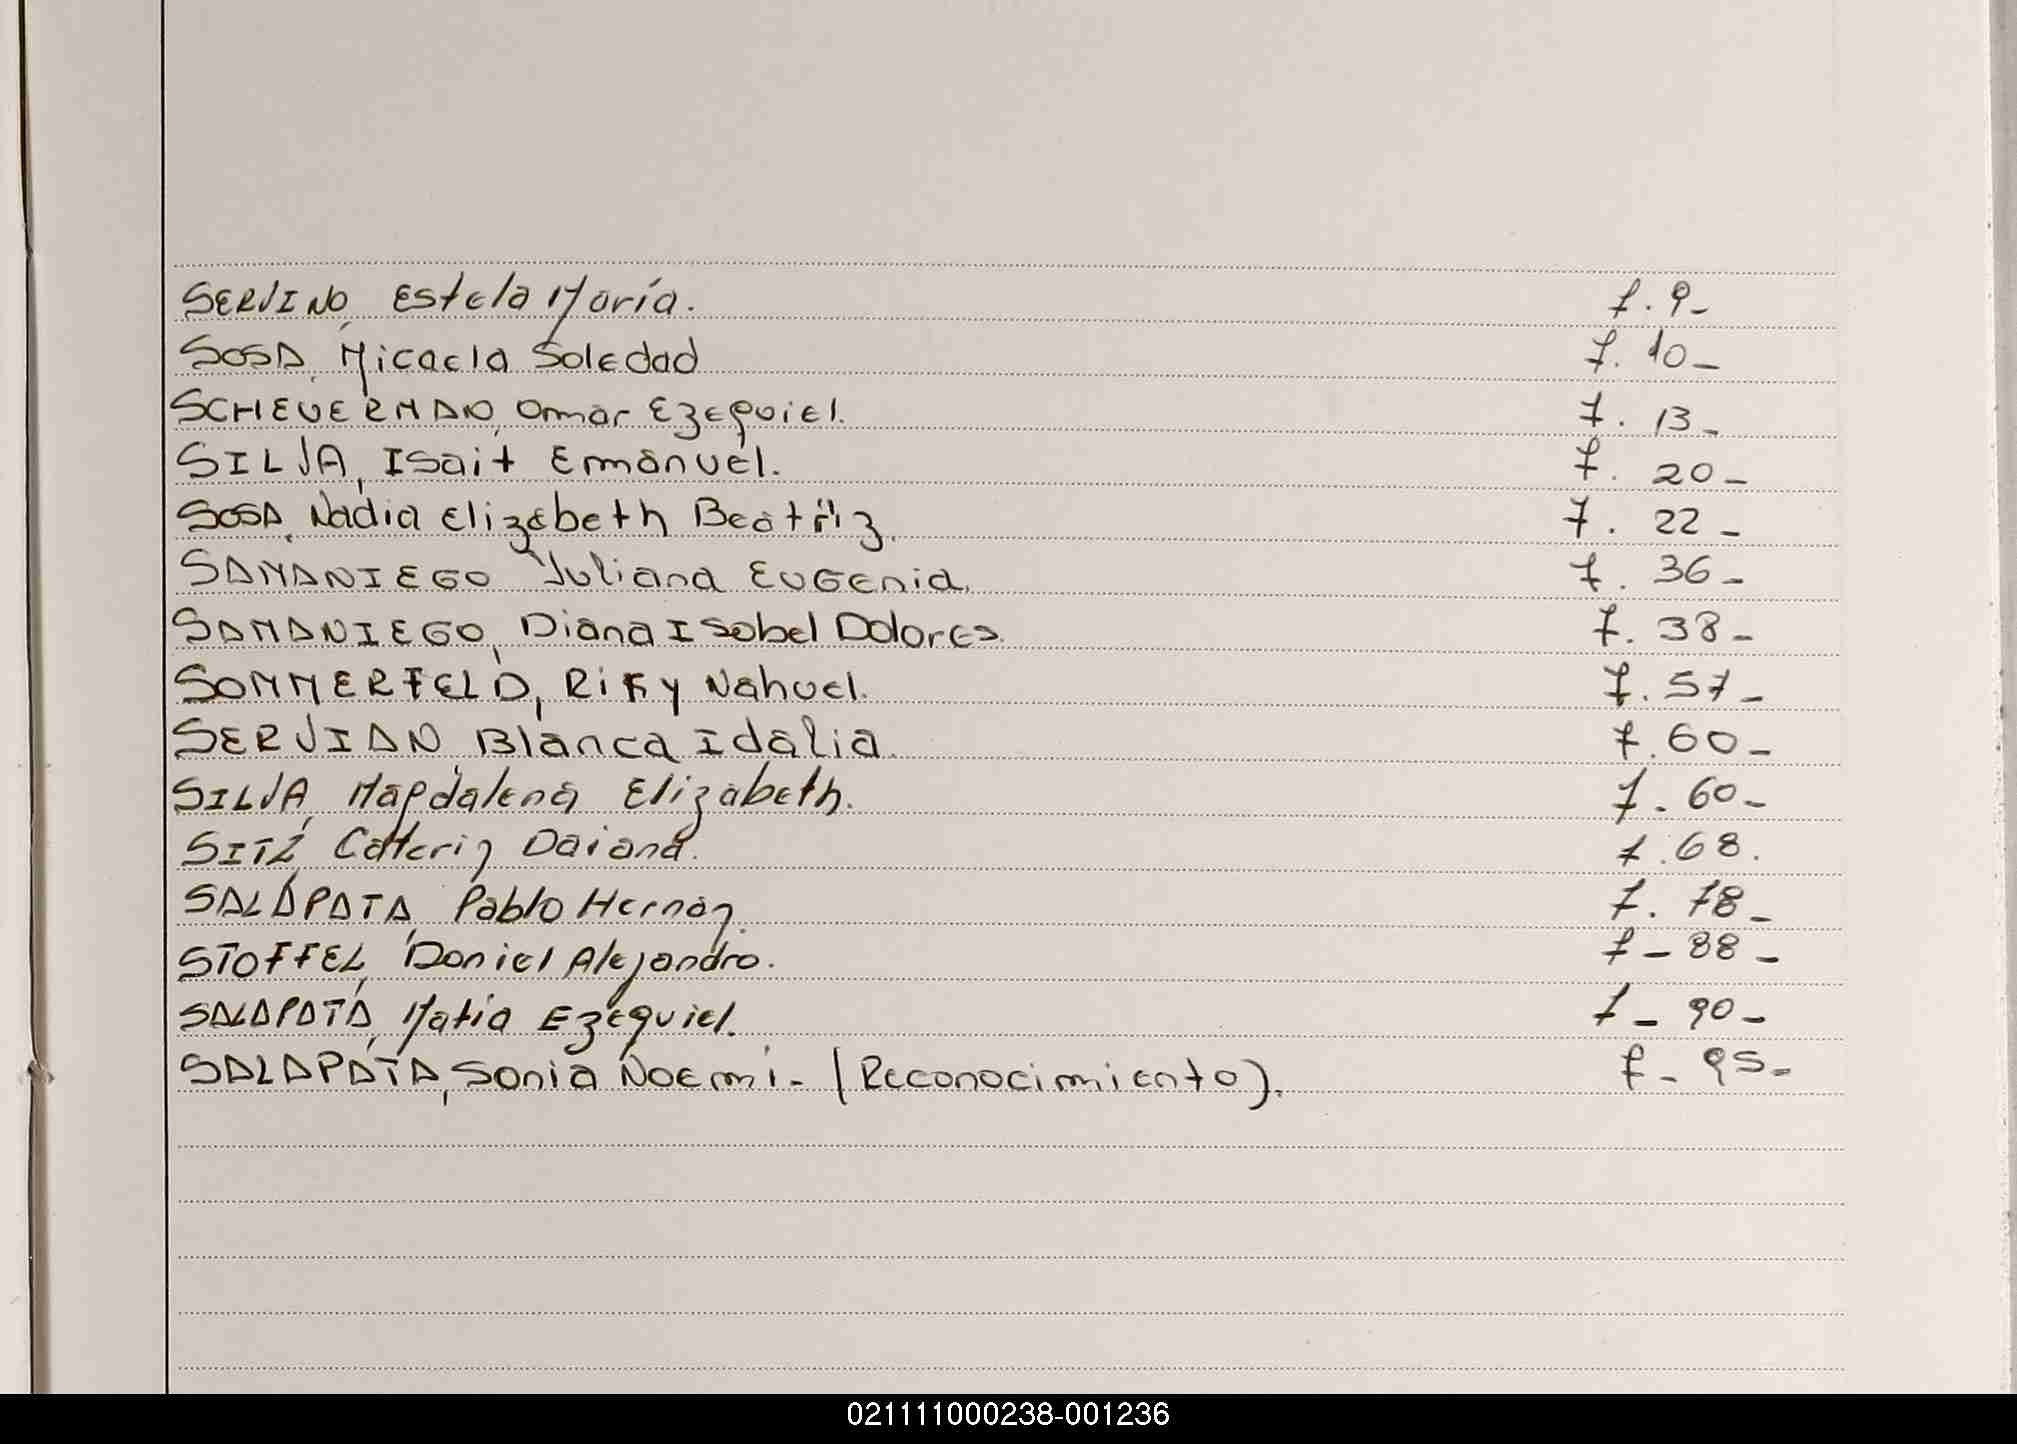 SERVINO, Estela María. f. 9-
SOSA, Micaela Soledad f. 10-
SCHEUERMAN, Omar Ezequiel. f. 13-
SILVA, Isait Emanuel. f. 20-
SOSA, Nadia Elizabeth Beatriz. f. 22-
SAMANIEGO Yuliana Eugenia. f. 36-
SAMANIEGO, Diana Isabel Dolores. f. 38-
SOMMERFELD, Riky Nahuel. f. 57-
SERVIAN Blanca Idalia. f. 60-
SILVA, Magdalena Elizabeth. f. 60-
SITZ, Catterin Daiana. f. 68.
SALAPATA, Pablo Hernán. f. 78-
STOFFEL, Daniel Alejandro. f - 88 -
SALAPATA, Matia Ezequiel. f - 90 -
SALAPATA, Sonia Noemi. - (Reconocimiento). f - 95-
021111000238-001236